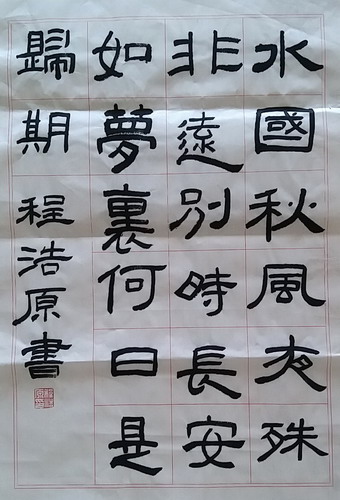 水國秋風夜殊
非遠別時長安
如夢裏何日是
歸期 程浩原書